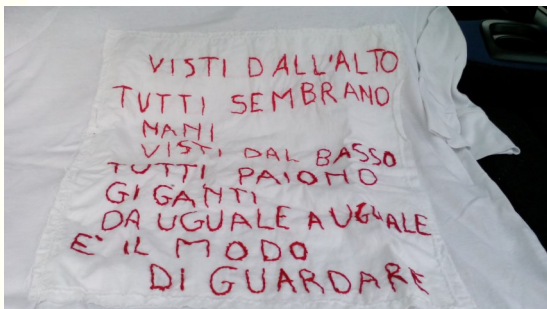 VISTI DALL'ALTO
TUTTI SEMBRANO
NANI
VISTI DAL BASSO
TUTTI PAIONO
GIGANTI
DA UGUALE A UGUALE
E' IL MODO
DI GUARDARE